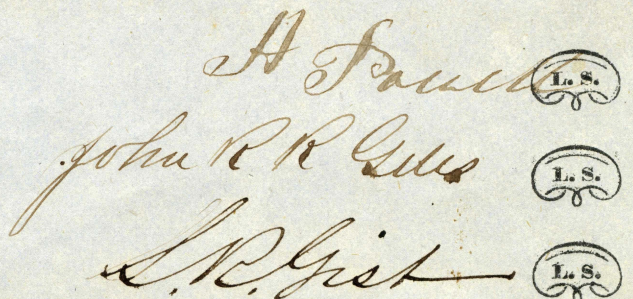 H Powell L. S.
John R R Giles L. S.
S. R. Gist L. S.